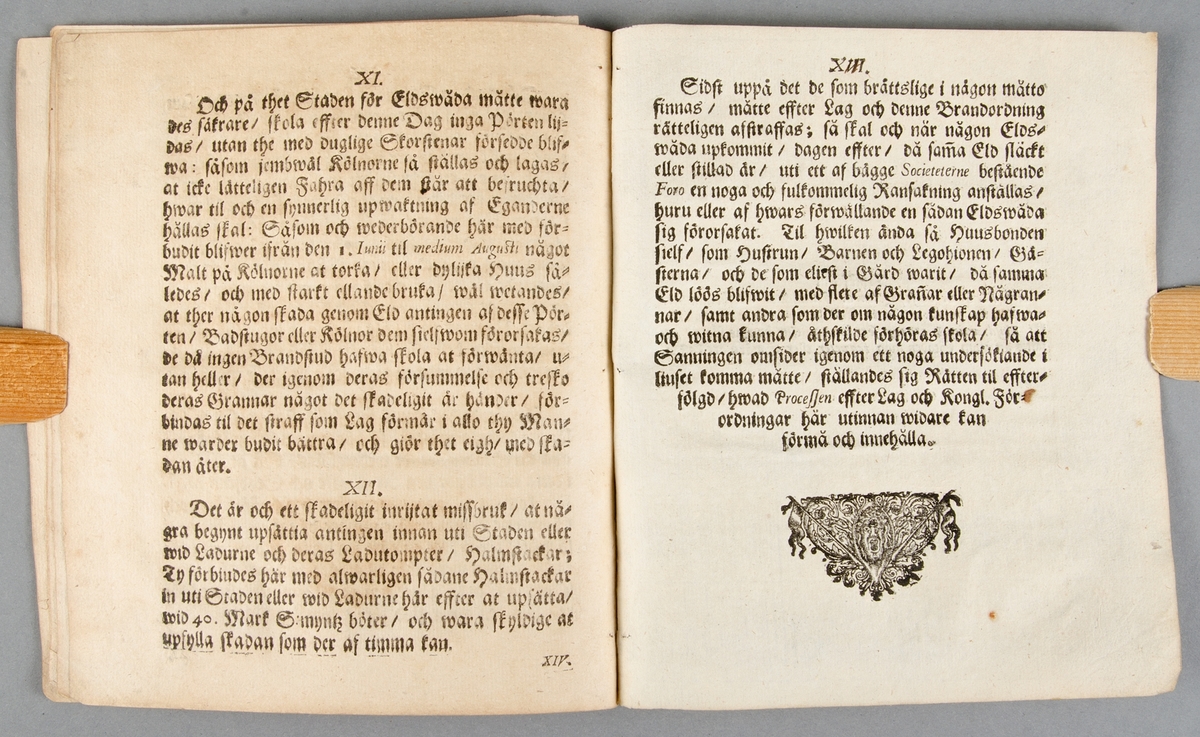 XI.
Och på thet Staden för Eldswåda måtte wara
des säkrare / skola effter denne Dag inga Pörten lij-
das / utan the med duglige Skorstenar försedde blif-
wa: såsom jembwäl Kölnorne så ställas och lagas /
at icke lätteligen Fahra aff dem står att befruchta /
hwar til och en synnerlig upwaktning af Eganderne
hållas skal: Såsom och wederbörande här med för-
budit blifwer ifrån den 1. Iunii til medium Augusti något
Malt på Kölnorne at torka / eller dylijka Huus så-
ledes / och med starkt ellande bruka / wäl wetandes /
at ther någon skada genom Eld antingen af desse Pör-
ten / Badstugor eller Kölnor dem sielfwom förorsakas /
de då ingen Brandstud hafwa skola at förwänta / u-
tan heller / der igenom deras försummelse och tresko
deras Grannar något det skadeligit är händer / för-
bindas til det straff som Lag förmår i allo thy Man-
ne warder budit bättra / och giör thet eigh / med ska-
dan åter.
XII.
Det är och ett skadeligit inrijtat missbruk / at nå-
gra begynt upsättia antingen innan uti Staden eller
wid Ladurne och deras Ladutompter / Halmstackar;
Ty förbindes här med alwarligen sådane Halmstackar
in uti Staden eller wid Ladurne här effter at upsätta /
wid 40. Mark S:myntz böter / och wara skyldige at
upfylla skadan som der af timma kan.
XIV.
XIII.
Sidst uppå det de som bråttslige i någon måtto
finnas / måtte effter Lag och denne Brandordning
rätteligen afstraffas; så skal och när någon Elds-
wåda upkommit / dagen effter / då sam̃a Eld släckt
eller stillad är / uti ett af bägge Societeterne bestående
Foro en noga och fulkommelig Ransakning anställas /
huru eller af hwars förwållande en sådan Eldswåda
sig förorsakat. Til hwilken ända så Huusbonden
sielf / som Hustrun / Barnen och Legohionen / Gä-
sterna / och de som eliest i Gård warit / då samma
Eld löös blifwit / med flere af Grañar eller Någran-
nar / samt andra som der om någon kunskap hafwa
och witna kunna / åthskilde förhöras skola / så att
Sanningen omsider igenom ett noga undersökiande i
liuset komma måtte / ställandes sig Rätten til effter-
fölgd / hwad Processen effter Lag och Kongl. För-
ordningar här utinnan widare kan
förmå och innehålla.